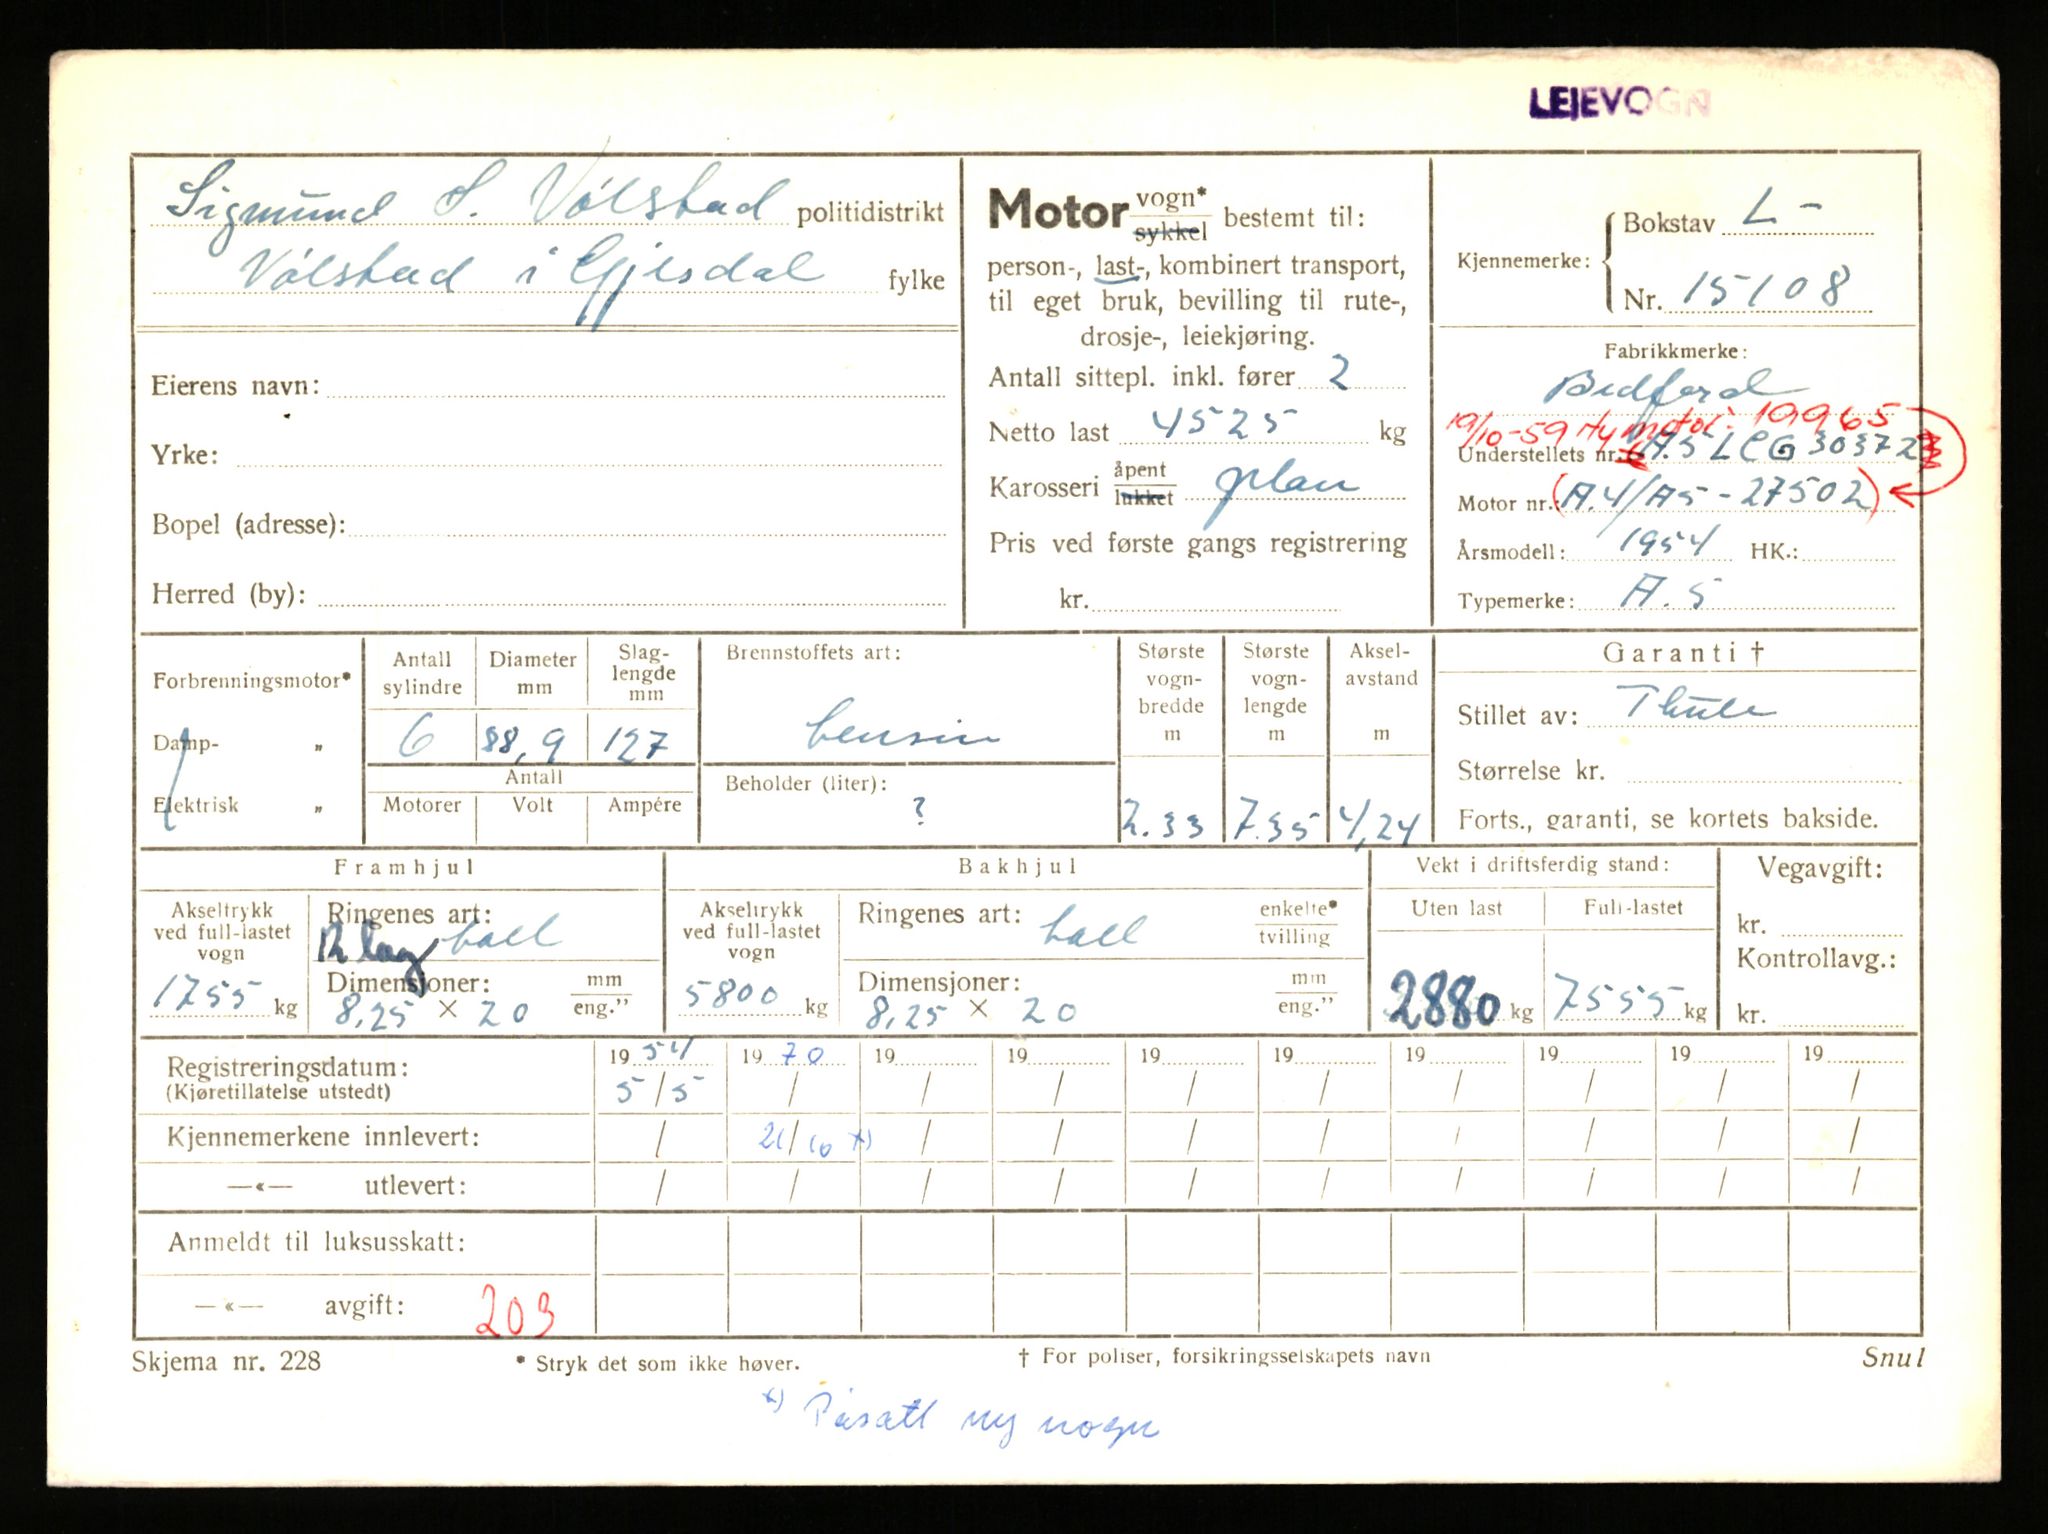 LEIEVOGN
Sigmund S. Vólstad politidistrikt
Vólstad i Gjesdal fylke
Eierens navn:
Yrke:
Bopel (adresse):
Herred (by):
Motor vogn* sykkel bestemt til:
person-, last-, kombinert transport,
til eget bruk, bevilling til rute-,
drosje-, leiekjøring.
Antall sittepl. inkl. fører 2
Netto last 4525 kg
Karosseri åpent lukket plan
Pris ved første gangs registrering
kr.
Kjennemerke: Bokstav L-
Nr. 15108
Fabrikkmerke:
Bedford
19/10-59 Ny motor: 19965
Understellets nr. A.5LCG30372
Motor nr. (A.4/A5-27502)
Årsmodell: 1954 HK.:
Typemerke: A.5
Forbrenningsmotor*
Damp- "
Elektrisk "
Antall sylindre
6
Diameter mm
88,9
Slag-lengde mm
127
Antall
Motorer Volt Ampére
Brennstoffets art:
bensin
Beholder (liter):
?
Største vogn-bredde m
2.33
Største vogn-lengde m
7.35
Aksel-avstand m
4,24
Garanti †
Stillet av: Thule
Størrelse kr.
Forts., garanti, se kortets bakside.
Framhjul
Akseltrykk ved full-lastet vogn
1755 kg
Ringenes art:
12 lag ball
Dimensjoner: mm
8,25 × 20 eng."
Bakhjul
Akseltrykk ved full-lastet vogn
5800 kg
Ringenes art: ball enkelte* tvilling
Dimensjoner: mm
8,25 × 20 eng."
Vekt i driftsferdig stand:
Uten last Full-lastet
2880 kg 7555 kg
Vegavgift:
kr.
Kontrollavg.:
kr.
Registreringsdatum: 1954 1970 19 19 19 19 19 19 19 19
(Kjøretillatelse utstedt) 5/5 / / / / / / / / /
Kjennemerkene innlevert: / 21/10 x) / / / / / / / /
—«— utlevert: / / / / / / / / / /
Anmeldt til luksusskatt:
—«— avgift: 203
Skjema nr. 228 * Stryk det som ikke høver. † For poliser, forsikringsselskapets navn Snul
x) Påsatt ny vogn